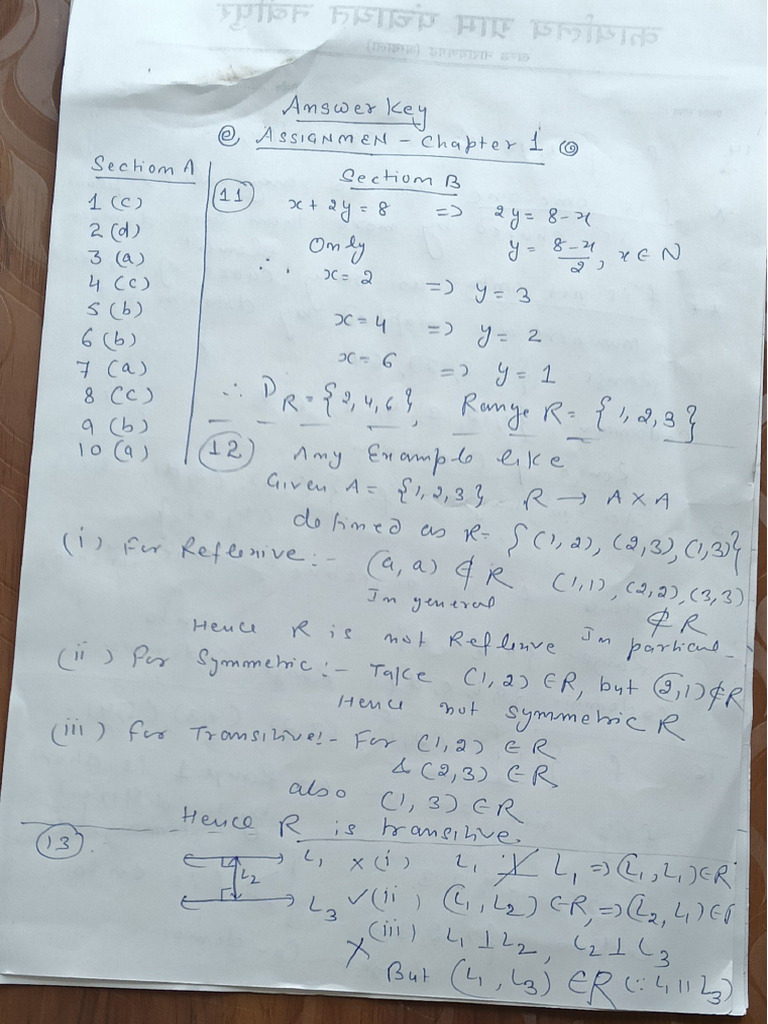 कार्यालय ग्राम पंचायत नबीपुर
Answer key
@ ASSIGNMEN - Chapter 1 @
Section A
1 (c)
2 (d)
3 (a)
4 (c)
5 (b)
6 (b)
7 (a)
8 (c)
9 (b)
10 (a)
Section B
11 x + 2y = 8 => 2y = 8-x
Only y = 8-x/2, x ∈ N
∴ x = 2 => y = 3
x = 4 => y = 2
x = 6 => y = 1
∴ D R = {2,4,6}, Range R = {1,2,3}
12 Any Example like
Given A = {1,2,3} R → A X A
defined as R = {(1,2), (2,3), (1,3)}
(i) For Reflexive :- (a,a) ∉ R (1,1), (2,2), (3,3)
In general ∉ R
Hence R is not Reflexive In particul-
(ii) For Symmetric :- Take (1,2) ∈ R, but (2,1) ∉ R
Hence not symmetric R
(iii) For Transitive :- For (1,2) ∈ R
& (2,3) ∈ R
also (1,3) ∈ R
Hence R is transitive.
13. L1 x (i) L1 ⊥̸ L1 => (L1, L1) ∈ R
L2
L3 ✓ (ii) (L1, L2) ∈ R, => (L2, L1) ∈ R
X (iii) L1 ⊥ L2, L2 ⊥ L3
But (L1, L3) ∈ R (∵ L1 || L3)